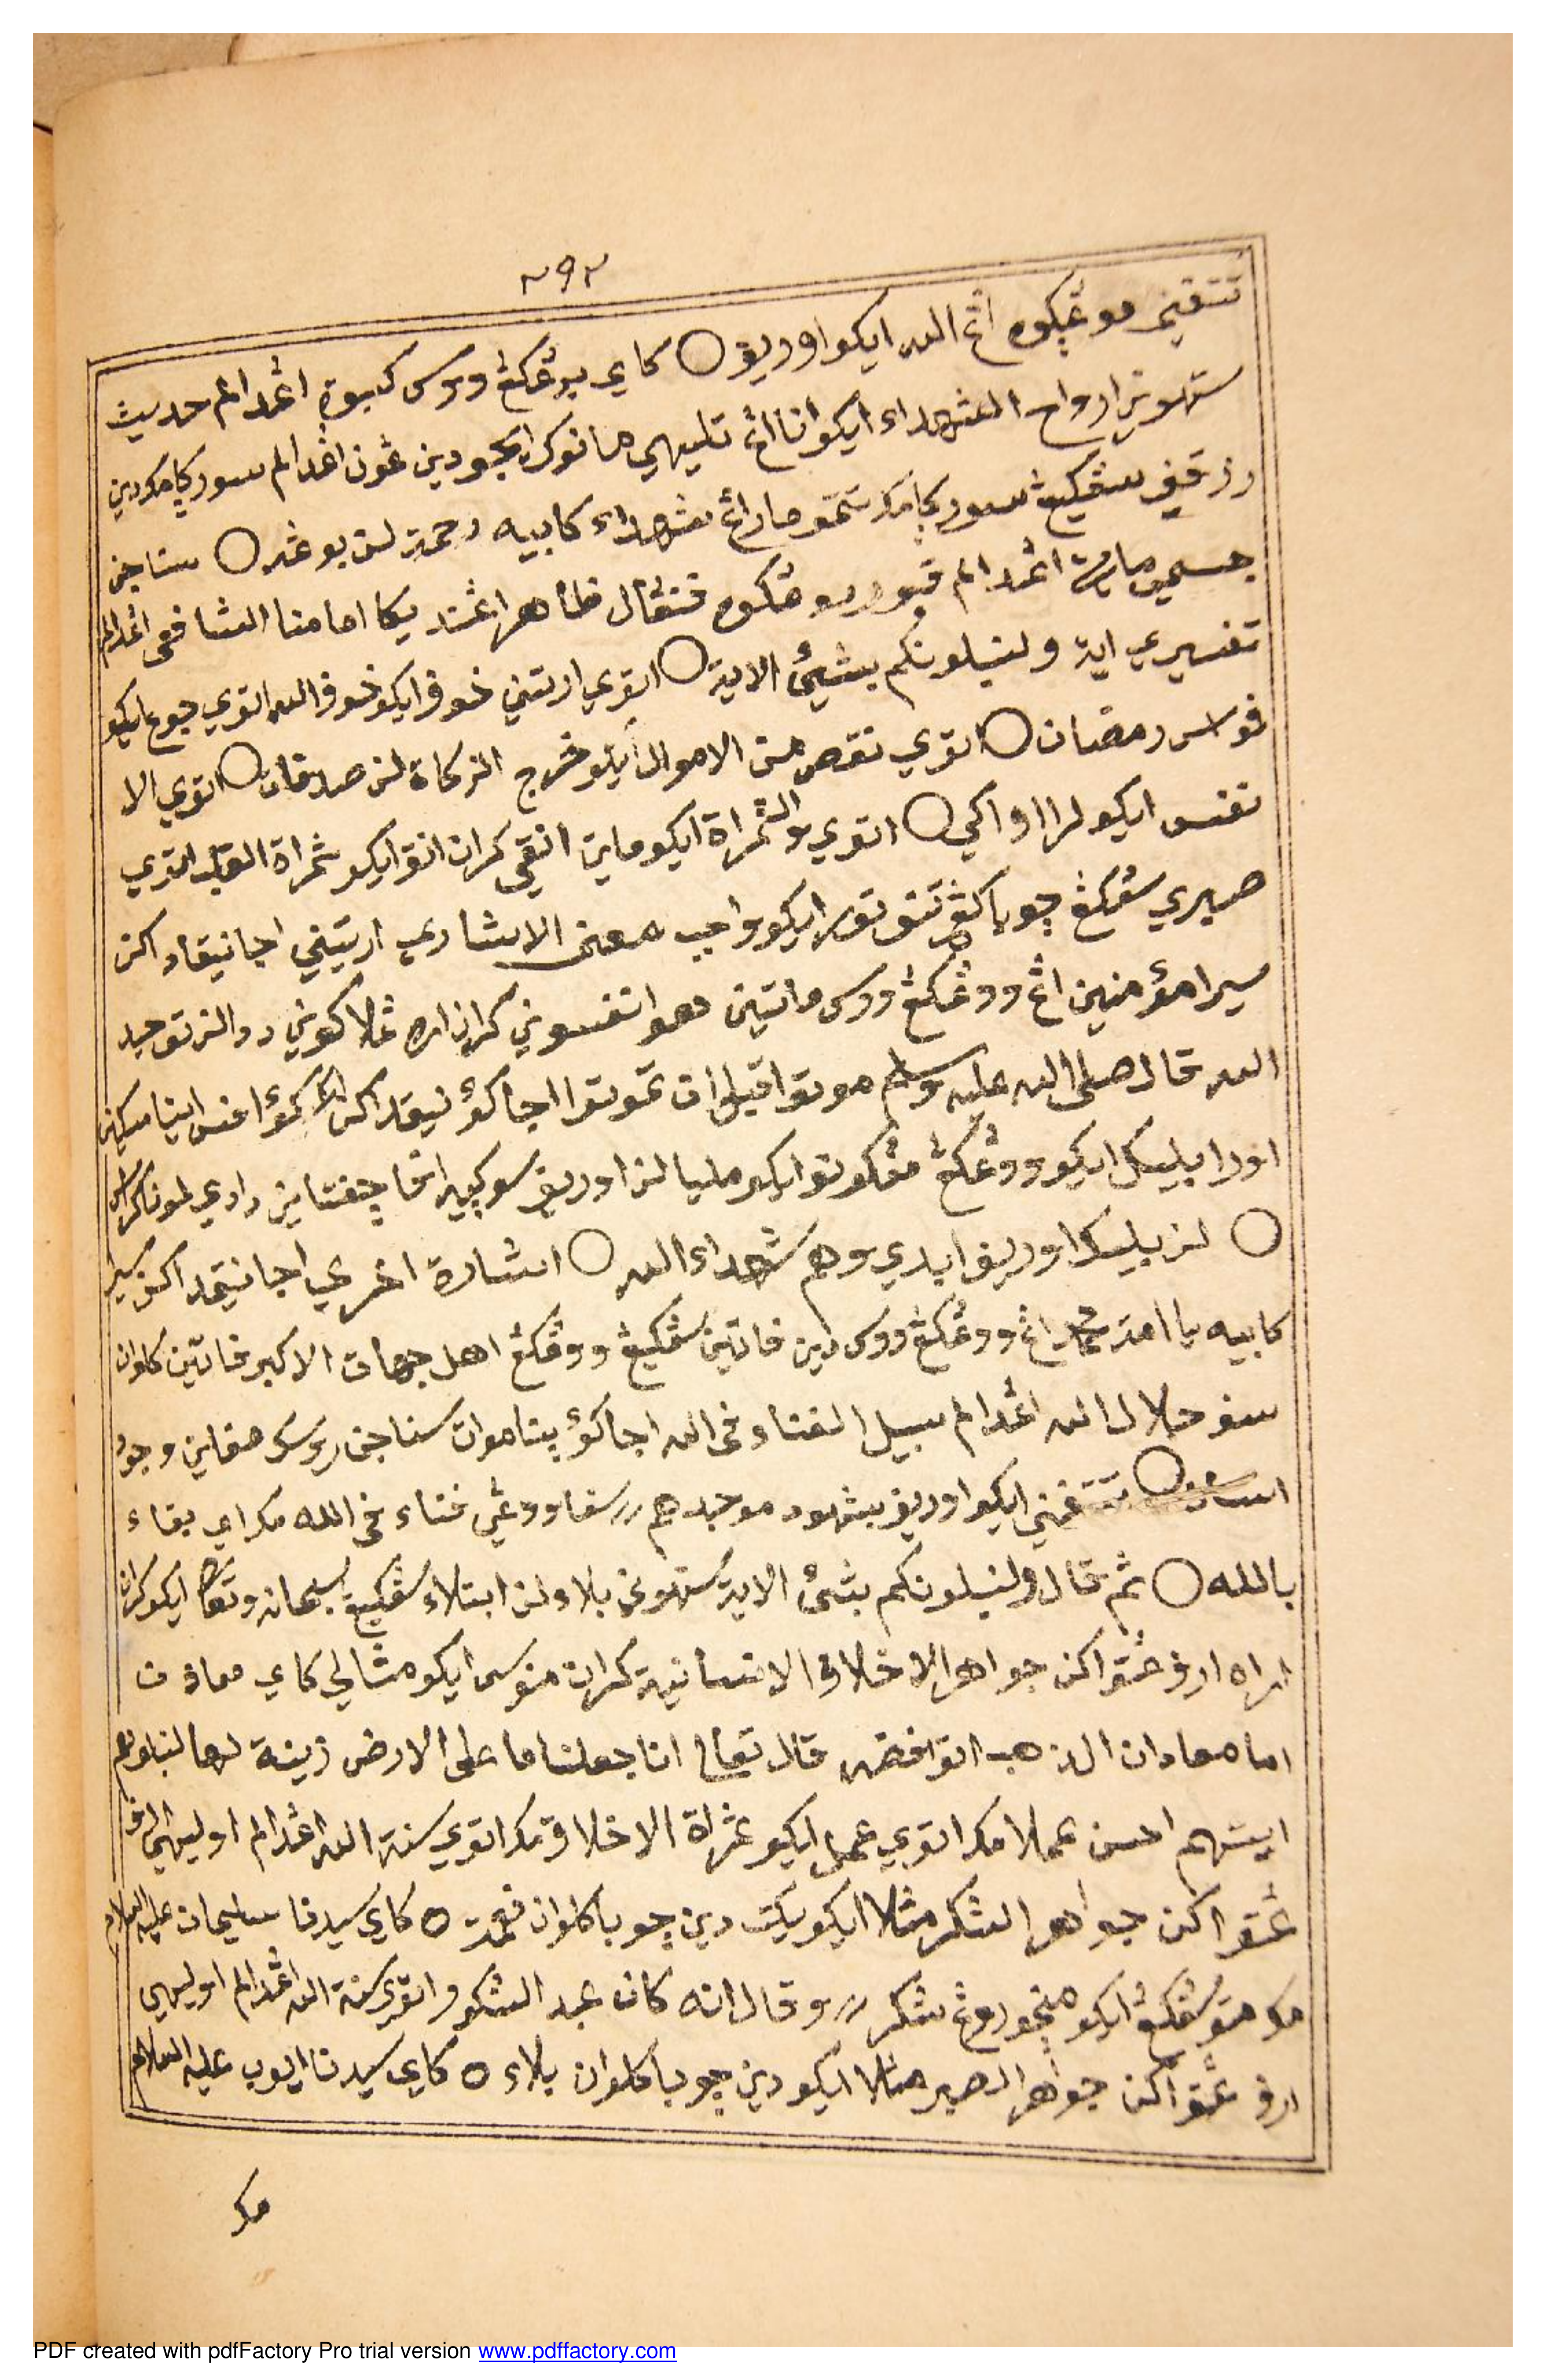 ٢٩٢
تتفني موڠكوه اڠ الله ايكو اوريف ○ كاي يرڠكڠ ووس كسبوة اڠدالم حديث
ستهوني ارواح الشهداء ايكو انا اڠ تليهي مانوك ايجو دين ڠون اڠدالم سورڮا مك دين
رزقني سڠكيڠ سورڮا مك تتمو ماراڠ شهداء كابيه رحمة لن بوڠه ○ سناجن
جسمي ماريه اڠدالم قبور موڠكوه فنڠال ظاهر اڠنديكا امامنا الشافعى اڠدالم
تفسيري اية ولنبلونكم بشيئ الاية ○ اتوي ارتيني خوف ايكو خوف الله اتوي جوع ايكو
فواس رمضان ○ اتوي نقص من الاموال ايكو خرج الزكاة لن صدقات ○ اتوي الا
نفس ايكو لارا اواكي ○ اتوي والثمراة ايكو ماتي انقي كران انق ايكو ثمراة القلب اتوي
صبري سڠكڠ چوبا كڠ تتوتور ايكو واجب معنى الاشاري ارتيني اجا نيقاد اكن
سيرا مؤمنين اڠ ووڠكڠ ووس ماتيني هوا نفسوني كران اره ڠلاكوني دالن توحيد
الله قال صلى الله عليه وسلم موتوا قبل ان تموتوا اجا كؤ نيقد اكن
اورا بليكل ايكو ووڠكڠ مڠكونو ايكو مليا لن اوريف سوكييه اتا چڤتاني دادي لمون
○ لن بليكل اوريف ابدي وهم شهداء الله ○ اشارة اخرى اجا نيقد اكن سيرا
كابيه يا امة محمد اڠ ووڠكڠ ووس دين فاتيني سڠكيڠ ووڠكڠ اهل جهاد الاكبر فاتين كلوان
سيف جلال الله اڠدالم سبيل الفناء فى الله اجا كؤ يتا موات سناجن روسك صفاتي وجود
تتفني ايكو اوريف بشهود موجدهم سفا ووڠي فناء فى الله مك اي بقاء
بالله ○ ثم قال ولنبلونكم بشئ الاية ستهوني بلاء لن ابتلاء سڠكيڠ سبحانه وتعالى ايكو كران
اراه ارف ڠتواكن جواهر الاخلاق الانسانية كران منوس ايكو مثالي كاي معادن
اما معادان الذهب اتوا فضه قال تعالى انا جعلنا ما على الارض زينة لها لنبلوهم
ايتهم احسن عملا مك اتوي عمل ايكو ثمراة الاخلاق مك اتوي سنة الله اڠدالم اوليهي ارف
ڠتواكن جواهر الشكر مثلا ايكو يكت دين چوبا كلوان نعمة ○ كاي سيدنا سليمان عليه السلام
مك متو سڠكڠ ايكو منچوروڠ شكر وقال انه كان عبد الشكور اتوي سنة الله اڠدالم اوليهي
ارف ڠتواكن جواهر الصبر مثلا ايكو دين چوبا كلوان بلاء ○ كاي سيدنا ايوب عليه السلام
مك
PDF created with pdfFactory Pro trial version www.pdffactory.com